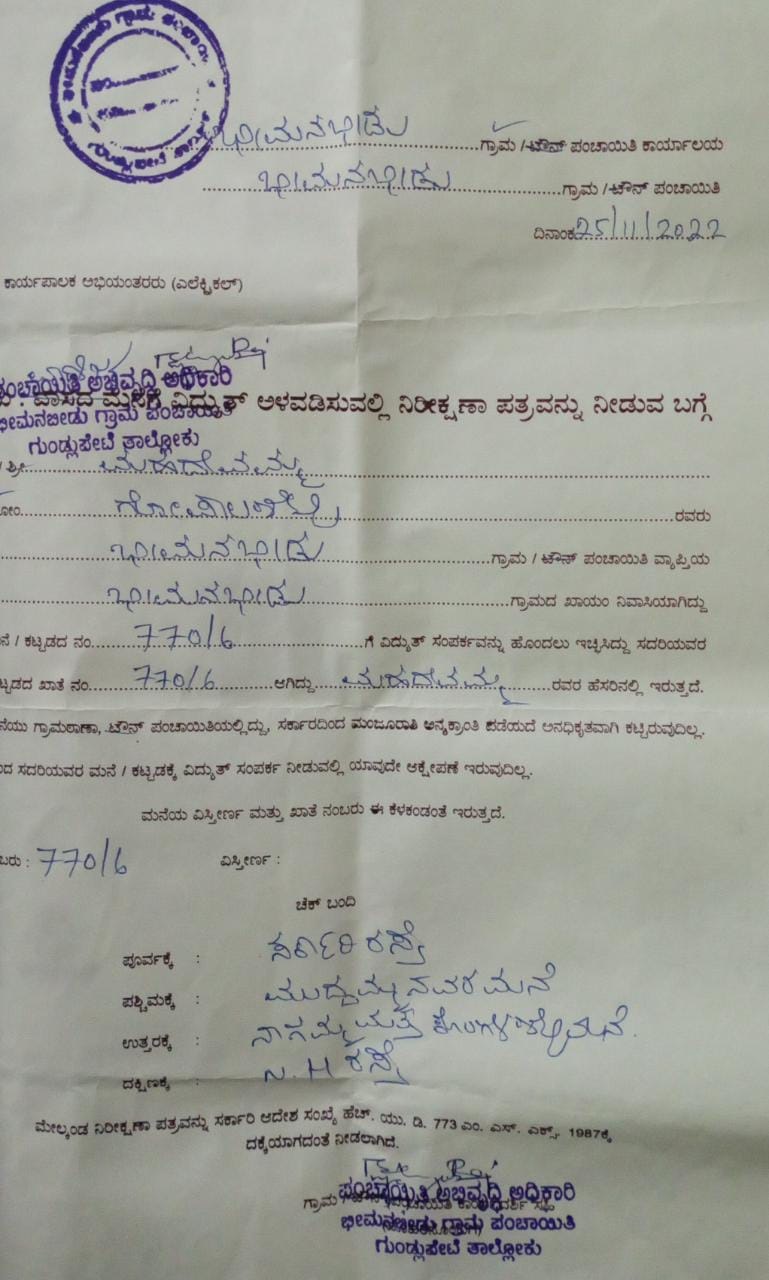 ಭೀಮನಬೀಡು ಗ್ರಾಮ / ಟೌನ್ ಪಂಚಾಯಿತಿ ಕಾರ್ಯಾಲಯ
ಭೀಮನಬೀಡು ಗ್ರಾಮ / ಟೌನ್ ಪಂಚಾಯಿತಿ
ದಿನಾಂಕ 25/11/2022
ಕಾರ್ಯಪಾಲಕ ಅಭಿಯಂತರರು (ಎಲೆಕ್ಟ್ರಿಕಲ್)
ಪಂಚಾಯಿತಿ ಅಭಿವೃದ್ಧಿ ಅಧಿಕಾರಿ
ವಾಸದ ಮನೆಗೆ ವಿದ್ಯುತ್ ಅಳವಡಿಸುವಲ್ಲಿ ನಿರೀಕ್ಷಣಾ ಪತ್ರವನ್ನು ನೀಡುವ ಬಗ್ಗೆ
ಭೀಮನಬೀಡು ಗ್ರಾಮ ಪಂಚಾಯಿತಿ
ಗುಂಡ್ಲುಪೇಟೆ ತಾಲ್ಲೋಕು
/ ಶ್ರೀ ಮಹದೇವಮ್ಮ
ಗೋಪಾಲಶೆಟ್ಟಿ ರವರು
ಭೀಮನಬೀಡು ಗ್ರಾಮ / ಟೌನ್ ಪಂಚಾಯಿತಿ ವ್ಯಾಪ್ತಿಯ
ಭೀಮನಬೀಡು ಗ್ರಾಮದ ಖಾಯಂ ನಿವಾಸಿಯಾಗಿದ್ದು
ನೆ / ಕಟ್ಟಡದ ನಂ. 770/6 ಗೆ ವಿದ್ಯುತ್ ಸಂಪರ್ಕವನ್ನು ಹೊಂದಲು ಇಚ್ಛಿಸಿದ್ದು ಸದರಿಯವರ
ಟ್ಟಡದ ಖಾತೆ ನಂ. 770/6 ಆಗಿದ್ದು ಮಹದೇವಮ್ಮ ರವರ ಹೆಸರಿನಲ್ಲಿ ಇರುತ್ತದೆ.
ನೆಯು ಗ್ರಾಮಠಾಣಾ, ಟೌನ್ ಪಂಚಾಯಿತಿಯಲ್ಲಿದ್ದು, ಸರ್ಕಾರದಿಂದ ಮಂಜೂರಾತಿ ಅನ್ಯಕ್ರಾಂತಿ ಪಡೆಯದೆ ಅನಧಿಕೃತವಾಗಿ ಕಟ್ಟಿರುವುದಿಲ್ಲ.
ಂದ ಸದರಿಯವರ ಮನೆ / ಕಟ್ಟಡಕ್ಕೆ ವಿದ್ಯುತ್ ಸಂಪರ್ಕ ನೀಡುವಲ್ಲಿ ಯಾವುದೇ ಆಕ್ಷೇಪಣೆ ಇರುವುದಿಲ್ಲ.
ಮನೆಯ ವಿಸ್ತೀರ್ಣ ಮತ್ತು ಖಾತೆ ನಂಬರು ಈ ಕೆಳಕಂಡಂತೆ ಇರುತ್ತದೆ.
ಬರು : 770/6 ವಿಸ್ತೀರ್ಣ :
ಚೆಕ್ ಬಂದಿ
ಪೂರ್ವಕ್ಕೆ : ಸರ್ಕಾರಿ ರಸ್ತೆ
ಪಶ್ಚಿಮಕ್ಕೆ : ಮುದ್ದಮ್ಮನವರ ಮನೆ
ಉತ್ತರಕ್ಕೆ : ನಾಗಮ್ಮ ಮತ್ತು ಮನೆ.
ದಕ್ಷಿಣಕ್ಕೆ : N. H ರಸ್ತೆ
ಮೇಲ್ಕಂಡ ನಿರೀಕ್ಷಣಾ ಪತ್ರವನ್ನು ಸರ್ಕಾರಿ ಆದೇಶ ಸಂಖ್ಯೆ ಹೆಚ್. ಯು. ಡಿ. 773 ಎಂ. ಎಸ್. ಎಕ್ಸ್. 1987ಕ್ಕೆ
ದಕ್ಕೆಯಾಗದಂತೆ ನೀಡಲಾಗಿದೆ.
ಪಂಚಾಯಿತಿ ಅಭಿವೃದ್ಧಿ ಅಧಿಕಾರಿ
ಭೀಮನಬೀಡು ಗ್ರಾಮ ಪಂಚಾಯಿತಿ
ಗುಂಡ್ಲುಪೇಟೆ ತಾಲ್ಲೋಕು